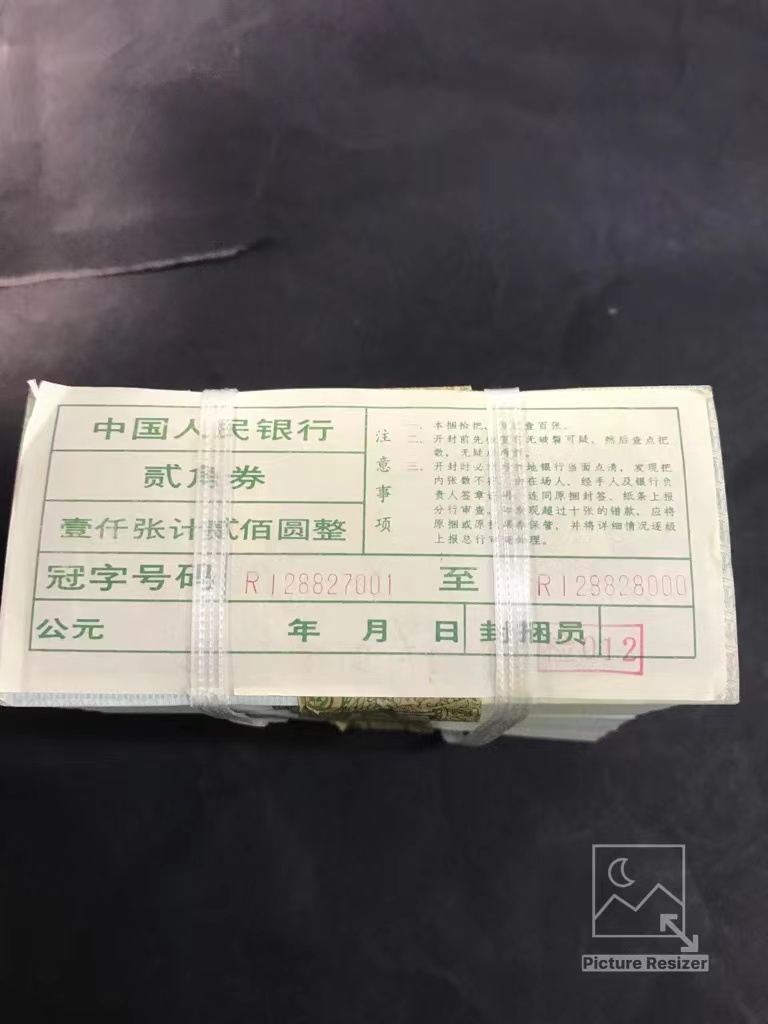 中国人民银行
贰角券
壹仟张计贰佰圆整
注意事项
一、本捆拾把,
查百张。
二、开封前先
无破裂可疑, 然后查点把
数, 无疑
三、开封时必
地银行当面点清, 发现把
内张数不
在场人, 经手人及银行负
责人签章
连同原捆封签、纸条上报
分行审查,
发现超过十张的错款, 应将
原捆或原
保管, 并将详细情况逐级
上报总行
处理。
冠字号码 RI28827001 至 RI28828000
公元 年 月 日 封捆员
012
Picture Resizer